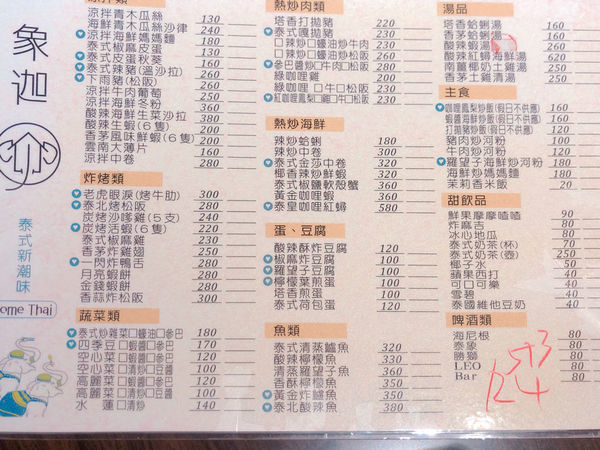 象迦
泰式新潮味
ome Thai
涼拌類
涼拌青木瓜絲 130
海鮮青木瓜絲沙律 240
涼拌海鮮媽媽麵 180
泰式椒麻皮蛋 130
泰式皮蛋秋葵 160
泰式辣豬(溫沙拉) 220
下雨豬(松阪) 200
涼拌牛肉葡萄 250
涼拌海鮮冬粉 360
酸辣海鮮生菜沙拉 380
酸辣生蝦(6隻) 200
香茅風味鮮蝦(6隻) 200
雲南大薄片 160
涼拌中卷 280
炸烤類
老虎眼淚(烤牛肋) 300
泰北烤松阪 300
炭烤沙嗲雞(5支) 240
炭烤活蝦(6隻) 220
泰式椒麻雞 230
香茅炸雞翅 250
一閃炸鴨舌 280
月亮蝦餅 280
金錢蝦餅 280
香蒜炸松阪 300
蔬菜類
泰式炒雞菜□蠔油□參巴 180
四季豆□蝦醬□參巴 170
空心菜□蝦醬□參巴 120
空心菜□清炒□豆醬 100
高麗菜□蝦醬□參巴 120
高麗菜□清炒□豆醬 100
水蓮□清炒 140
熱炒肉類
塔香打拋豬 220
泰式嘎拋豬 230
□辣炒□蠔油炒牛肉 230
□辣炒□蠔油炒松阪 260
參巴醬炒□牛肉□松阪 280
綠咖哩雞 200
綠咖哩□牛□松阪 230
紅咖哩鳳梨□雞□牛□松阪 260
熱炒海鮮
辣炒蛤蜊 180
辣炒中卷 300
泰式金莎中卷 320
椰香辣鮮蝦 320
泰式椒鹽軟殼蟹 360
黃金咖哩蝦 360
泰皇咖哩紅蟳 580
蛋、豆腐
酸辣酥炸豆腐 120
椒麻炸豆腐 120
羅望子豆腐 120
檸檬葉煎蛋 100
塔香煎蛋 100
泰式荷包蛋 120
魚類
泰式清蒸鱸魚 320
酸辣檸檬魚 330
清蒸羅望子魚 360
香酥檸檬魚 350
黃金炸鱸魚 350
泰北酸辣魚 380
湯品
塔香蛤蜊湯 160
香茅蛤蜊湯 160
酸辣蝦湯 260
酸辣紅蟳海鮮湯 620
南薑椰奶土雞湯 250
香茅土雞清湯 250
主食
紅咖哩鳳梨炒飯(假日不供應) 160
蝦醬海鮮炒飯(假日不供應) 160
打拋豬炒飯(假日不供應) 160
豬肉炒河粉 160
牛肉炒河粉 160
羅望子海鮮炒河粉 180
海鮮炒媽媽麵 160
茉莉香米飯 20
甜飲品
鮮果摩摩喳喳 90
炸麻吉 80
冰心地瓜 80
泰式奶茶(杯) 70
泰式奶茶(壺) 250
椰子水 50
蘋果西打 40
可口可樂 40
雪碧 40
泰國維他豆奶 40
啤酒類
海尼根 80
泰象 80
勝獅 80
LEO 80
Bar 80